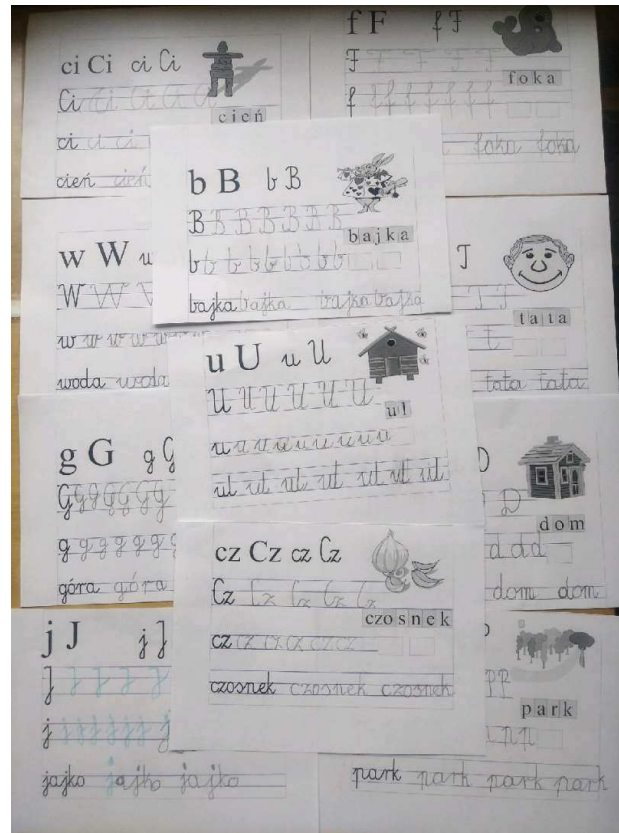 ci Ci ci Ci
Ci Ci Ci Ci Ci
cień
ci ci ci
cień cień
f F f F
F F F F F
foka
f f f f f f f
foka foka
b B b B
B B B B B B B
bajka
b b b b b b b b
bajka bajka bajka bajka
w W
W W W W
w w w w w w
woda woda
T
T T
tata
t
tata tata
u U u U
U U U U U U
ul
u u u u u u u u
ul ul ul ul ul ul ul
g G g G
G G G G G G
g g g g g g g
góra góra
D
D
dom
d d d
dom dom
cz Cz cz Cz
Cz Cz Cz Cz Cz
czosnek
cz cz cz cz cz cz
czosnek czosnek czosnek
j J j J
J J J J J
j j j j j j j j
jajko jajko jajko
P P
park
p p
park park park park